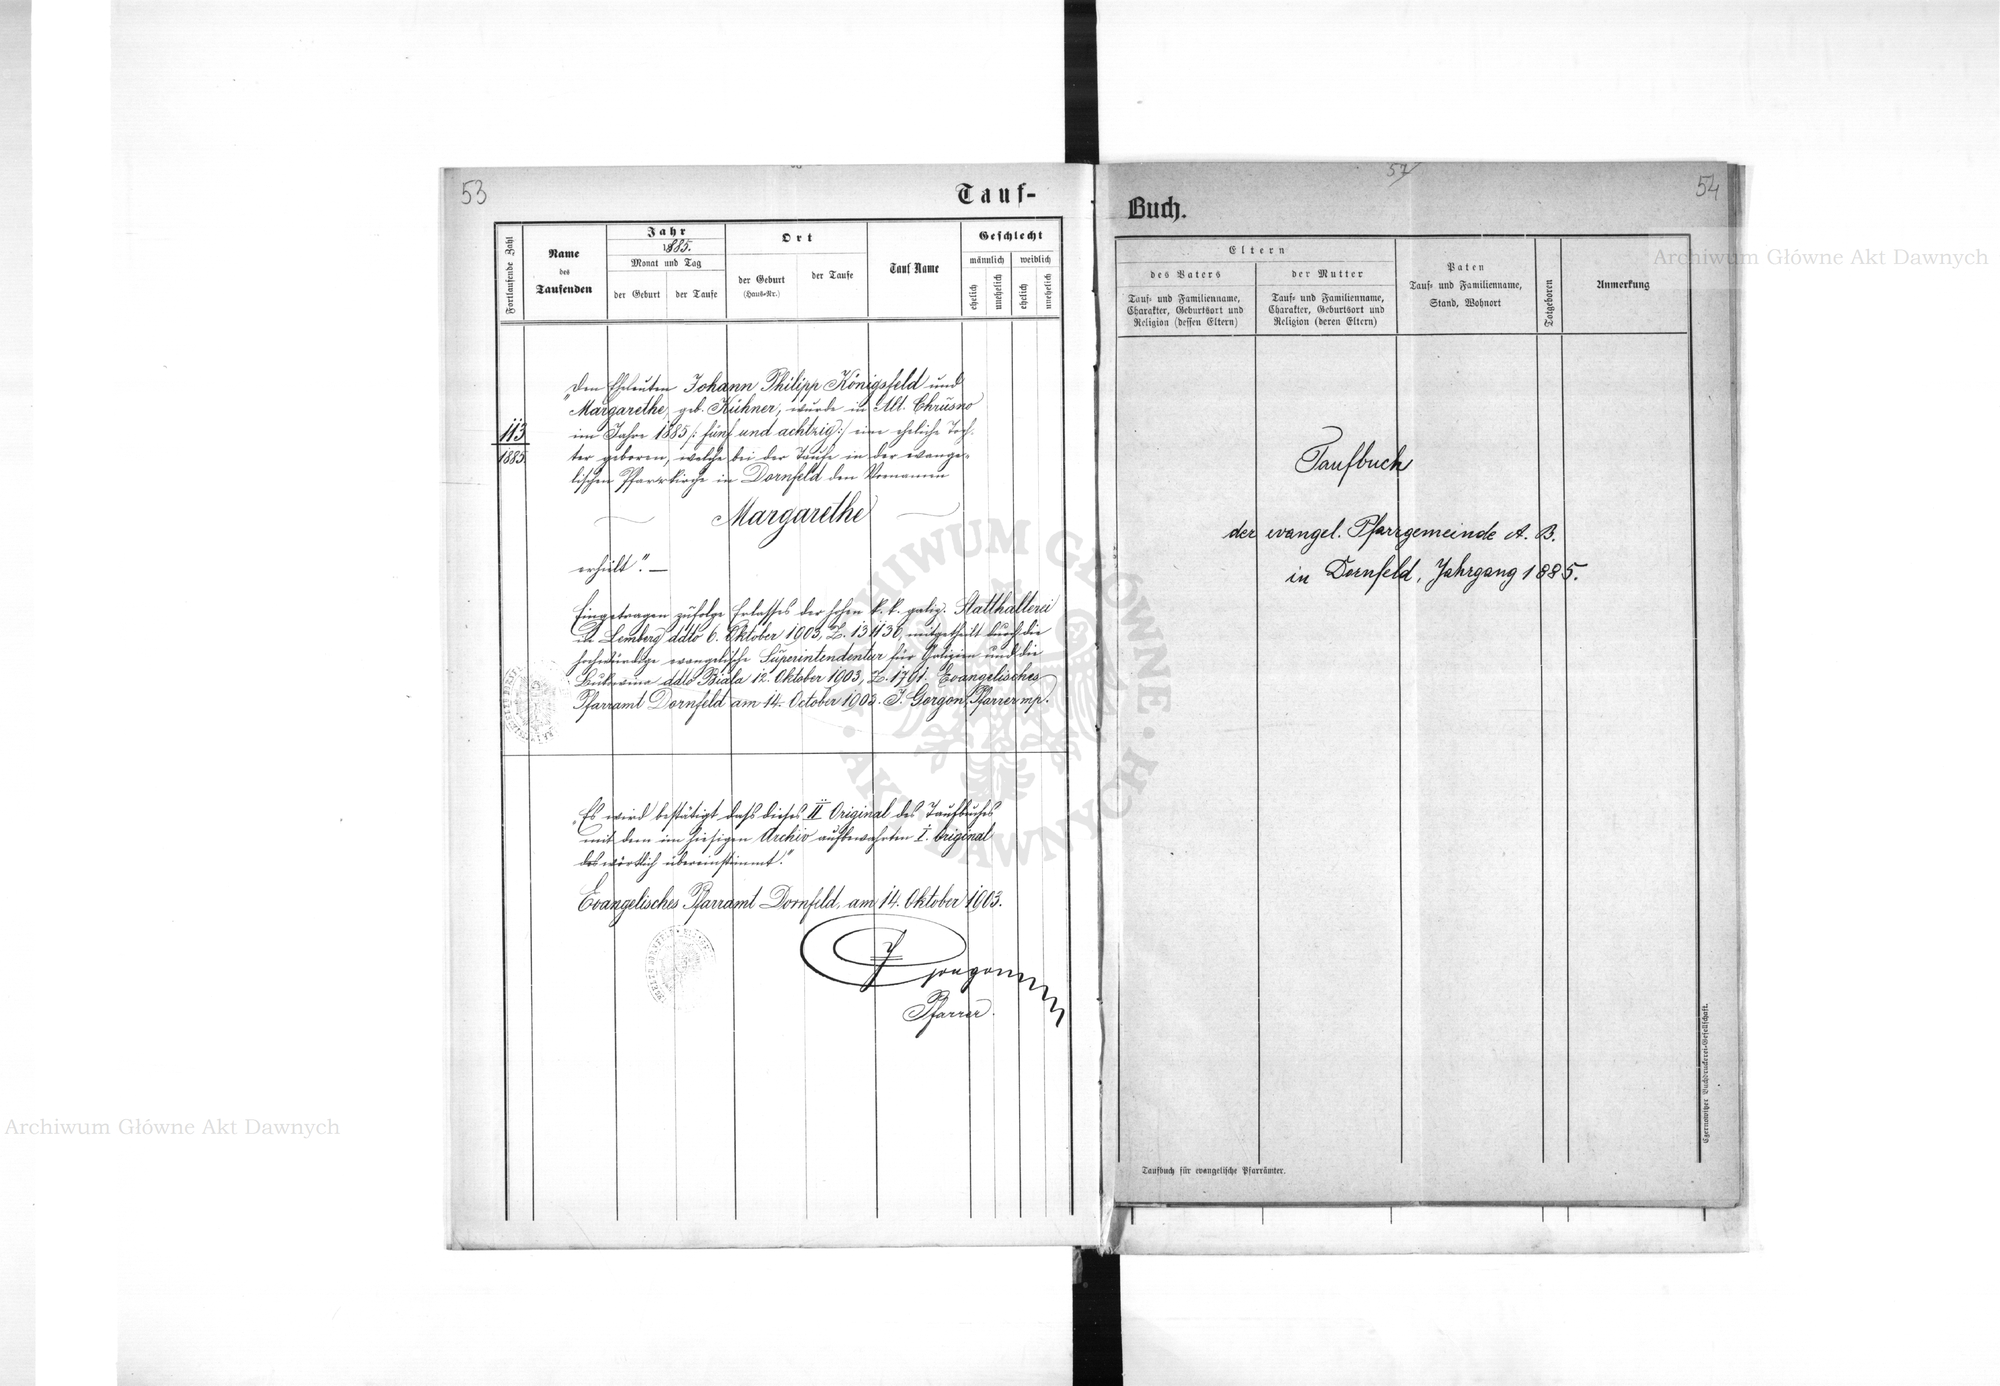 53
Tauf-
Fortlaufende Zahl
Name
des
Taufenden
Jahr
1885.
Monat und Tag
der Geburt
der Taufe
Ort
der Geburt
(Haus-Nr.)
der Taufe
Tauf Name
Geschlecht
männlich
weiblich
ehelich
unehelich
ehelich
unehelich
113
1885.
"Den Eheleuten Johann Philipp Königsfeld und
Margarethe, geb. Kühner, wurde in Alt. Chrusno
im Jahre 1885 /: fünf und achtzig :/ eine eheliche Toch-
ter geboren, welche bei der Taufe in der evange-
lischen Pfarrkirche in Dornfeld den Vornamen
Margarethe
erhielt". —
Eingetragen zufolge Erlasses der hohen k. k. galiz. Statthalterei
in Lemberg ddto 6. Oktober 1903, Z. 131136, mitgetheilt durch die
hochwürdige evangelische Superintendentur für Galizien und die
Bukowina ddto Biala 12. Oktober 1903, Z. 1791. Evangelisches
Pfarramt Dornfeld am 14. October 1903. J. Gorgon, Pfarrer mp.
"Es wird bestätigt dass dieses II Original des Taufbuches
mit dem im hiesigen Archiv aufbewahrten I. Original
des wörtlich übereinstimmt."
Evangelisches Pfarramt Dornfeld, am 14. Oktober 1903.
J Gorgon
Pfarrer.
57
54
Buch.
Eltern
des Vaters
Tauf- und Familienname,
Charakter, Geburtsort und
Religion (dessen Eltern)
der Mutter
Tauf- und Familienname,
Charakter, Geburtsort und
Religion (deren Eltern)
Paten
Tauf- und Familienname,
Stand, Wohnort
Totgeboren
Anmerkung
Taufbuch
der evangel. Pfarrgemeinde A. B.
in Dornfeld, Jahrgang 1885.
Taufbuch für evangelische Pfarrämter.
Czernowitzer Buchdruckerei-Gesellschaft.
Archiwum Główne Akt Dawnych
Archiwum Główne Akt Dawnych
ARCHIWUM GŁÓWNE
AKT DAWNYCH